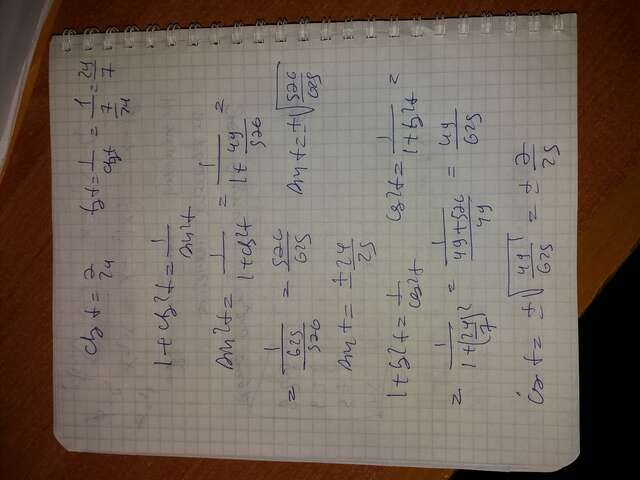 ctg t = 7/24 tg t = 1/ctg t = 1/(7/24) = 24/7
1 + ctg²t = 1/sin²t
sin²t = 1/(1+ctg²t) = 1/(1+49/576) =
= 1/(625/576) = 576/625 sin t = ±√(576/625)
sin t = ±24/25
1 + tg²t = 1/cos²t cos²t = 1/(1+tg²t) =
= 1/(1+(24/7)²) = 1/((49+576)/49) = 49/625
cos t = ±√(49/625) = ±7/25